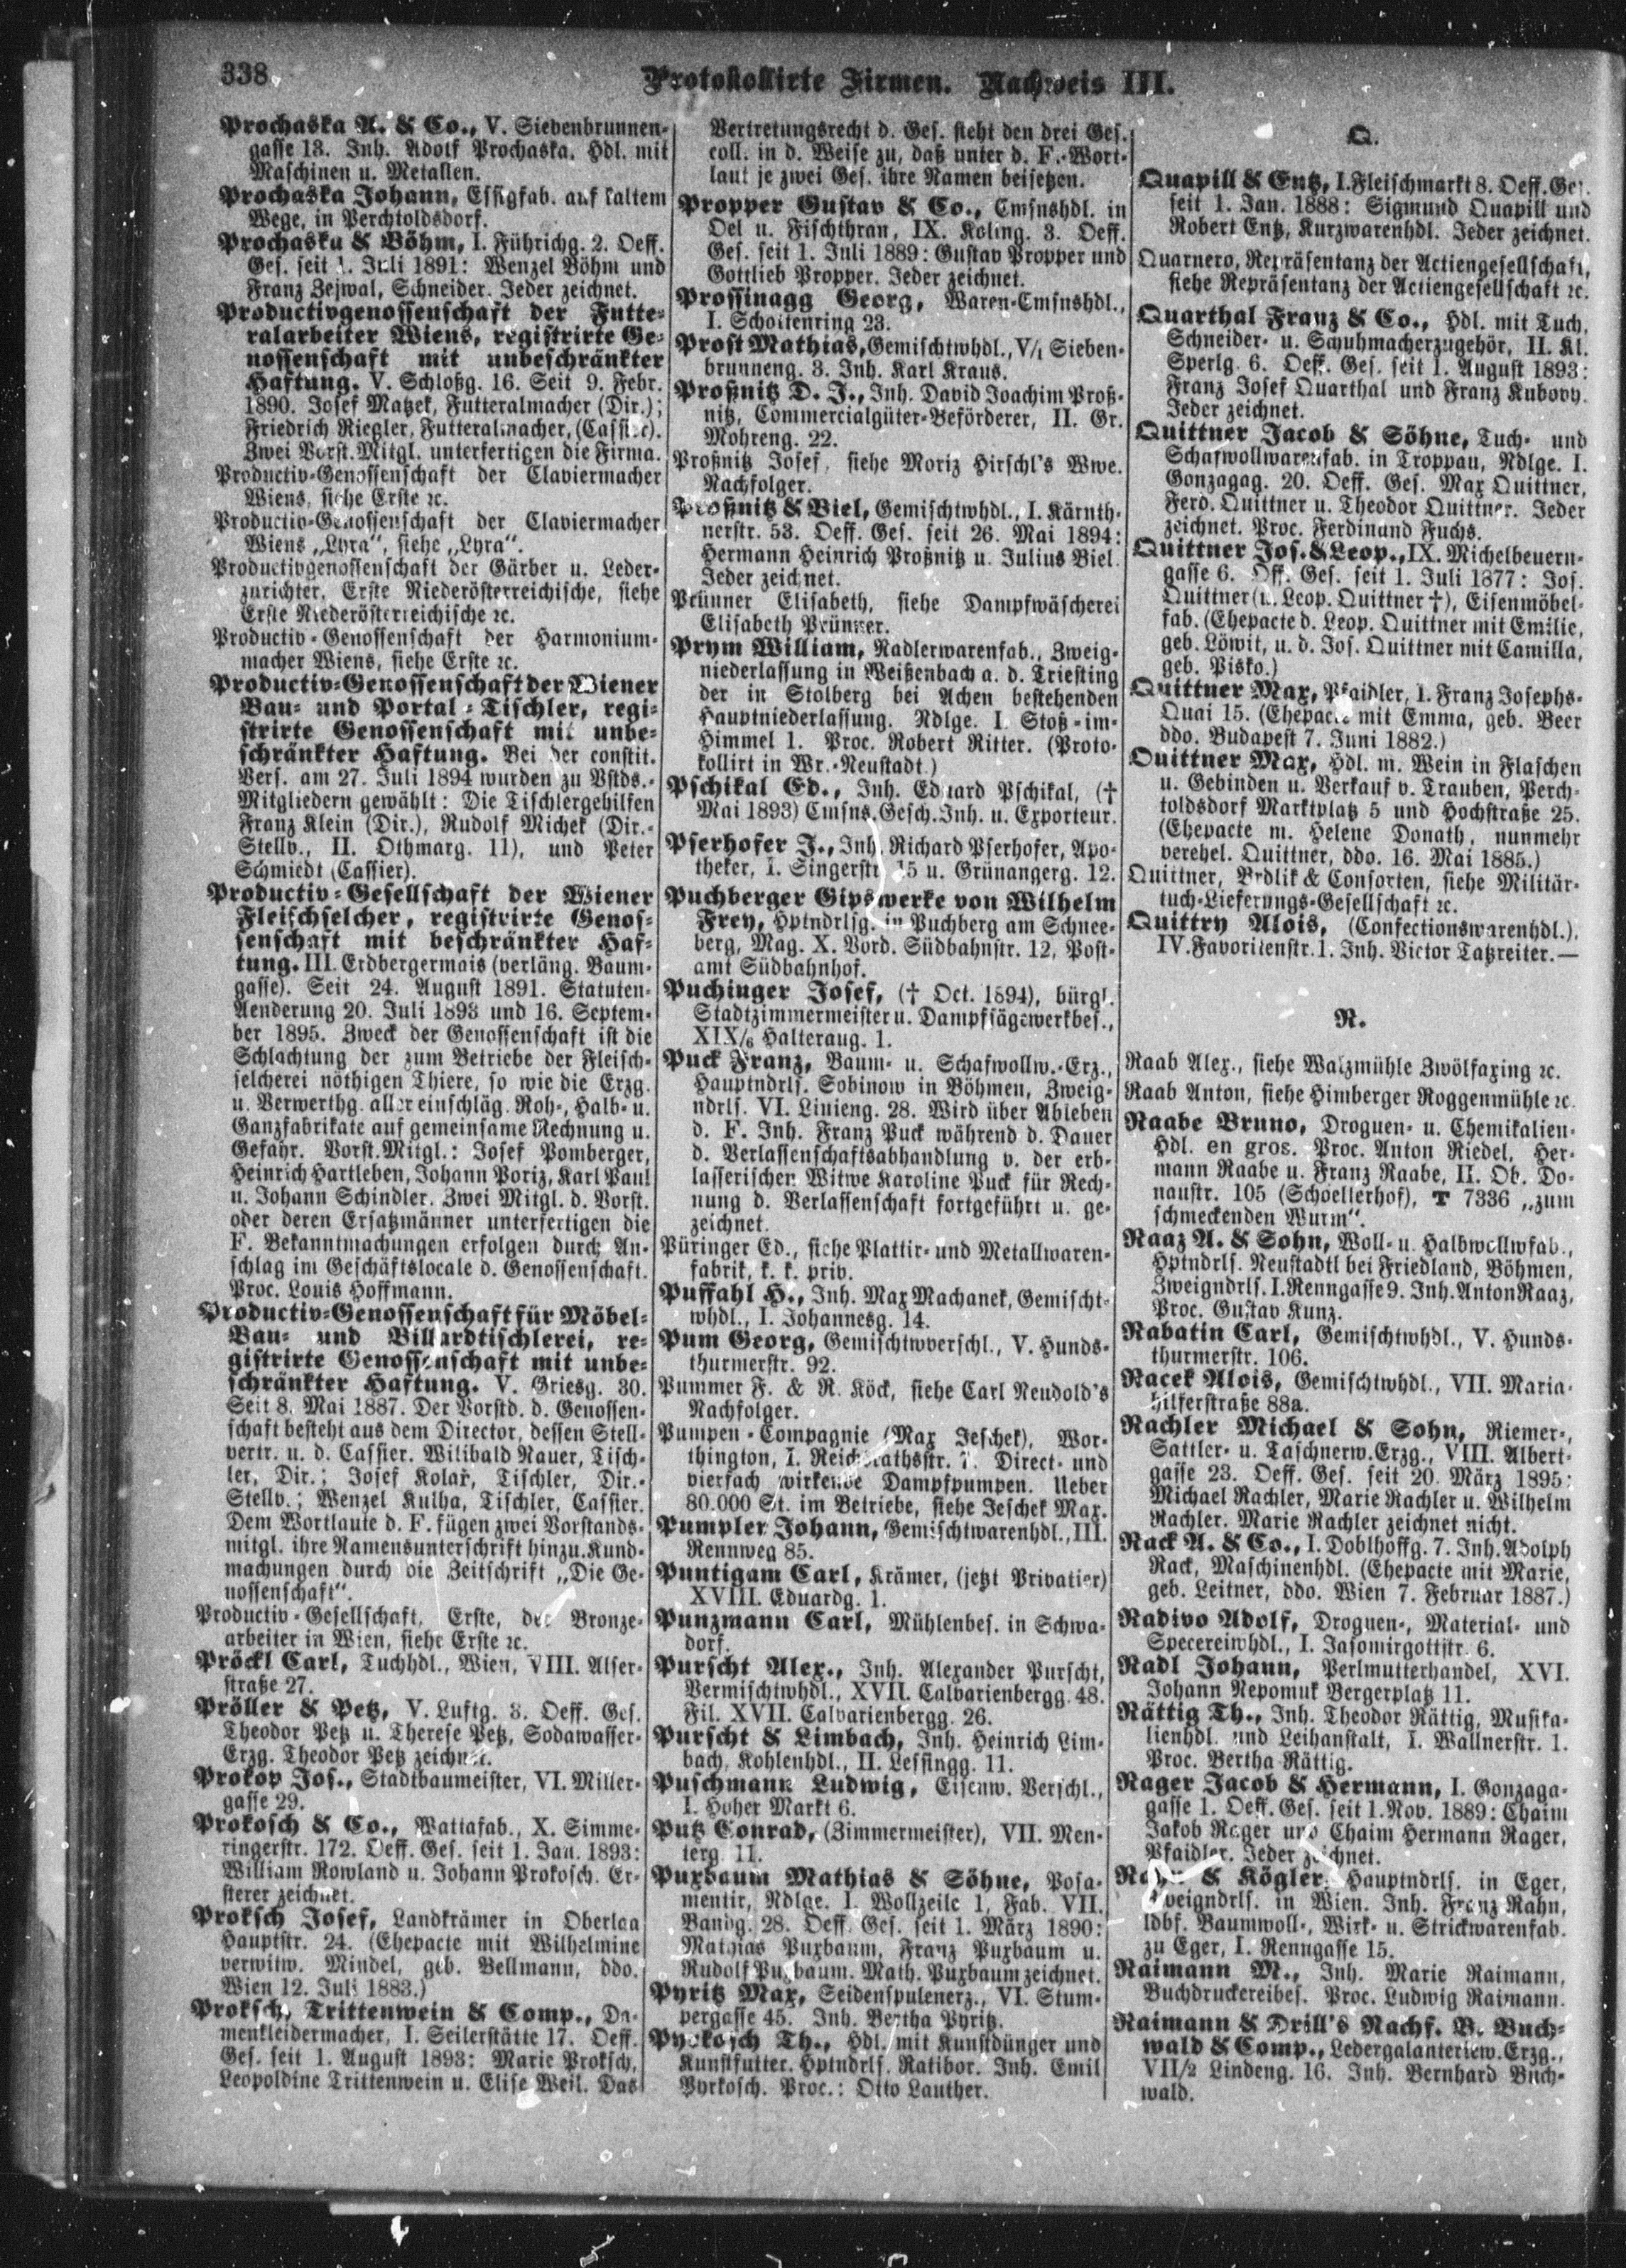 338
Protokollirte Firmen. Nachweis III.
Prochaska A. & Co., V. Siebenbrunnen-
gasse 13. Inh. Adolf Prochaska. Hdl. mit
Maschinen u. Metallen.
Prochaska Johann, Essigfab. auf kaltem
Wege, in Perchtoldsdorf.
Prochaska & Böhm, I. Führichg. 2. Oeff.
Ges. seit 1. Juli 1891: Wenzel Böhm und
Franz Zejwal, Schneider. Jeder zeichnet.
Productivgenossenschaft der Futte-
ralarbeiter Wiens, registrirte Ge-
nossenschaft mit unbeschränkter
Haftung. V. Schloßg. 16. Seit 9. Febr.
1890. Josef Matzek, Futteralmacher (Dir.);
Friedrich Riegler, Futteralmacher, (Cassier).
Zwei Vorst.Mitgl. unterfertigen die Firma.
Productiv-Genossenschaft der Claviermacher
Wiens, siehe Erste ꝛc.
Productiv-Genossenschaft der Claviermacher
Wiens „Lyra“, siehe „Lyra“.
Productivgenossenschaft der Gärber u. Leder-
zurichter, Erste Niederösterreichische, siehe
Erste Niederösterreichische ꝛc.
Productiv-Genossenschaft der Harmonium-
macher Wiens, siehe Erste ꝛc.
Productiv-Genossenschaft der Wiener
Bau- und Portal-Tischler, regi-
strirte Genossenschaft mit unbe-
schränkter Haftung. Bei der constit.
Vers. am 27. Juli 1894 wurden zu Vstds.-
Mitgliedern gewählt: Die Tischlergehilfen
Franz Klein (Dir.), Rudolf Michek (Dir.-
Stellv., II. Othmarg. 11), und Peter
Schmiedt (Cassier).
Productiv-Gesellschaft der Wiener
Fleischselcher, registrirte Genos-
senschaft mit beschränkter Haf-
tung. III. Erdbergermais (verläng. Baum-
gasse). Seit 24. August 1891. Statuten-
Aenderung 20. Juli 1893 und 16. Septem-
ber 1895. Zweck der Genossenschaft ist die
Schlachtung der zum Betriebe der Fleisch-
selcherei nöthigen Thiere, so wie die Erzg.
u. Verwerthg. aller einschläg. Roh-, Halb- u.
Ganzfabrikate auf gemeinsame Rechnung u.
Gefahr. Vorst.Mitgl.: Josef Pomberger,
Heinrich Hartleben, Johann Poriz, Karl Paul
u. Johann Schindler. Zwei Mitgl. d. Vorst.
oder deren Ersatzmänner unterfertigen die
F. Bekanntmachungen erfolgen durch An-
schlag im Geschäftslocale d. Genossenschaft.
Proc. Louis Hoffmann.
Productiv-Genossenschaft für Möbel-
Bau- und Billardtischlerei, re-
gistrirte Genossenschaft mit unbe-
schränkter Haftung. V. Griesg. 30.
Seit 8. Mai 1887. Der Vorstd. d. Genossen-
schaft besteht aus dem Director, dessen Stell-
vertr. u. d. Cassier. Wilibald Rauer, Tisch-
ler, Dir.; Josef Kolař, Tischler, Dir.-
Stellv.; Wenzel Kulha, Tischler, Cassier.
Dem Wortlaute d. F. fügen zwei Vorstands-
mitgl. ihre Namensunterschrift hinzu. Kund-
machungen durch die Zeitschrift „Die Ge-
nossenschaft“.
Productiv-Gesellschaft, Erste, der Bronze-
arbeiter in Wien, siehe Erste ꝛc.
Pröckl Carl, Tuchhdl., Wien, VIII. Alser-
straße 27.
Pröller & Petz, V. Luftg. 3. Oeff. Ges.
Theodor Petz u. Therese Petz, Sodawasser-
Erzg. Theodor Petz zeichnet.
Prokop Jos., Stadtbaumeister, VI. Miller-
gasse 29.
Prokosch & Co., Wattafab., X. Simme-
ringerstr. 172. Oeff. Ges. seit 1. Jan. 1893:
William Rowland u. Johann Prokosch. Er-
sterer zeichnet.
Proksch Josef, Landkrämer in Oberlaa
Hauptstr. 24. (Ehepacte mit Wilhelmine
verwitw. Mindel, geb. Bellmann, ddo.
Wien 12. Juli 1883.)
Proksch, Trittenwein & Comp., Da-
menkleidermacher, I. Seilerstätte 17. Oeff.
Ges. seit 1. August 1893: Marie Proksch,
Leopoldine Trittenwein u. Elise Weil. Das
Vertretungsrecht d. Ges. steht den drei Ges.
coll. in d. Weise zu, daß unter d. F.-Wort-
laut je zwei Ges. ihre Namen beisetzen.
Propper Gustav & Co., Cmsnshdl. in
Oel u. Fischthran, IX. Koling. 3. Oeff.
Ges. seit 1. Juli 1889: Gustav Propper und
Gottlieb Propper. Jeder zeichnet.
Prossinagg Georg, Waren-Cmsnshdl.,
I. Schottenring 23.
Prost Mathias, Gemischtwhdl., V/1 Sieben-
brunneng. 3. Inh. Karl Kraus.
Proßnitz D. J., Inh. David Joachim Proß-
nitz, Commercialgüter-Beförderer, II. Gr.
Mohreng. 22.
Proßnitz Josef, siehe Moriz Hirschl's Wwe.
Nachfolger.
Proßnitz & Biel, Gemischtwhdl., I. Kärnth-
nerstr. 53. Oeff. Ges. seit 26. Mai 1894:
Hermann Heinrich Proßnitz u. Julius Biel.
Jeder zeichnet.
Prünner Elisabeth, siehe Dampfwäscherei
Elisabeth Prünner.
Prym William, Nadlerwarenfab., Zweig-
niederlassung in Weißenbach a. d. Triesting
der in Stolberg bei Achen bestehenden
Hauptniederlassung. Ndlge. I. Stoß-im-
Himmel 1. Proc. Robert Ritter. (Proto-
kollirt in Wr.-Neustadt.)
Pschikal Ed., Inh. Eduard Pschikal, (†
Mai 1893) Cmsns.Gesch.Inh. u. Exporteur.
Pserhofer J., Inh. Richard Pserhofer, Apo-
theker, I. Singerstr. 15 u. Grünangerg. 12.
Puchberger Gipswerke von Wilhelm
Frey, Hptndrlsg. in Puchberg am Schnee-
berg, Mag. X. Vord. Südbahnstr. 12, Post-
amt Südbahnhof.
Puchinger Josef, († Oct. 1894), bürgl.
Stadtzimmermeister u. Dampfsägewerkbes.,
XIX/6 Halteraug. 1.
Puck Franz, Baum- u. Schafwollw.-Erz.,
Hauptndrls. Sobinow in Böhmen, Zweig-
ndrls. VI. Linieng. 28. Wird über Ableben
d. F. Inh. Franz Puck während d. Dauer
d. Verlassenschaftsabhandlung v. der erb-
lasserischen Witwe Karoline Puck für Rech-
nung d. Verlassenschaft fortgeführt u. ge-
zeichnet.
Püringer Ed., siehe Plattir- und Metallwaren-
fabrik, k. k. priv.
Puffahl H., Inh. Max Machanek, Gemischt-
whdl., I. Johannesg. 14.
Pum Georg, Gemischtwverschl., V. Hunds-
thurmerstr. 92.
Pummer F. & R. Köck, siehe Carl Neudold's
Nachfolger.
Pumpen-Compagnie (Max Jeschek), Wor-
thington, I. Reichsrathsstr. 7. Direct- und
vierfach wirkende Dampfpumpen. Ueber
80.000 St. im Betriebe, siehe Jeschek Max.
Pumpler Johann, Gemischtwarenhdl., III.
Rennweg 85.
Puntigam Carl, Krämer, (jetzt Privatier)
XVIII. Eduardg. 1.
Punzmann Carl, Mühlenbes. in Schwa-
dorf.
Purscht Alex., Inh. Alexander Purscht,
Vermischtwhdl., XVII. Calvarienbergg. 48.
Fil. XVII. Calvarienbergg. 26.
Purscht & Limbach, Inh. Heinrich Lim-
bach, Kohlenhdl., II. Lessingg. 11.
Puschmann Ludwig, Eisenw. Verschl.,
I. Hoher Markt 6.
Putz Conrad, (Zimmermeister), VII. Men-
terg. 11.
Puxbaum Mathias & Söhne, Posa-
mentir, Ndlge. I. Wollzeile 1, Fab. VII.
Bandg. 28. Oeff. Ges. seit 1. März 1890:
Mathias Puxbaum, Franz Puxbaum u.
Rudolf Puxbaum. Math. Puxbaum zeichnet.
Pyritz Max, Seidenspulenerz., VI. Stum-
pergasse 45. Inh. Bertha Pyritz.
Pyrkosch Th., Hdl. mit Kunstdünger und
Kunstfutter. Hptndrls. Ratibor. Inh. Emil
Pyrkosch. Proc.: Otto Lauther.
Q.
Quapill & Entz, I. Fleischmarkt 8. Oeff. Ges.
seit 1. Jan. 1888: Sigmund Quapill und
Robert Entz, Kurzwarenhdl. Jeder zeichnet.
Quarnero, Repräsentanz der Actiengesellschaft,
siehe Repräsentanz der Actiengesellschaft ꝛc.
Quarthal Franz & Co., Hdl. mit Tuch,
Schneider- u. Schuhmacherzugehör, II. Kl.
Sperlg. 6. Oeff. Ges. seit 1. August 1893:
Franz Josef Quarthal und Franz Kubovy.
Jeder zeichnet.
Quittner Jacob & Söhne, Tuch- und
Schafwollwarenfab. in Troppau, Ndlge. I.
Gonzagag. 20. Oeff. Ges. Max Quittner,
Ferd. Quittner u. Theodor Quittner. Jeder
zeichnet. Proc. Ferdinand Fuchs.
Quittner Jos. & Leop., IX. Michelbeuern-
gasse 6. Off. Ges. seit 1. Juli 1877: Jos.
Quittner (u. Leop. Quittner †), Eisenmöbel-
fab. (Ehepacte d. Leop. Quittner mit Emilie,
geb. Löwit, u. d. Jos. Quittner mit Camilla,
geb. Pisko.)
Quittner Max, Pfaidler, I. Franz Josephs-
Quai 15. (Ehepacte mit Emma, geb. Beer
ddo. Budapest 7. Juni 1882.)
Quittner Max, Hdl. m. Wein in Flaschen
u. Gebinden u. Verkauf v. Trauben, Perch-
toldsdorf Marktplatz 5 und Hochstraße 25.
(Ehepacte m. Helene Donath, nunmehr
verehel. Quittner, ddo. 16. Mai 1885.)
Quittner, Brdlik & Consorten, siehe Militär-
tuch-Lieferungs-Gesellschaft ꝛc.
Quittry Alois, (Confectionswarenhdl.),
IV. Favoritenstr. 1. Inh. Victor Tatzreiter.—
R.
Raab Alex., siehe Walzmühle Zwölfaxing ꝛc.
Raab Anton, siehe Himberger Roggenmühle ꝛc.
Raabe Bruno, Droguen- u. Chemikalien-
Hdl. en gros. Proc. Anton Riedel, Her-
mann Raabe u. Franz Raabe, II. Ob. Do-
naustr. 105 (Schoellerhof), T 7336 „zum
schmeckenden Wurm“.
Raaz A. & Sohn, Woll- u. Halbwollwfab.,
Hptndrls. Neustadtl bei Friedland, Böhmen,
Zweigndrls. I. Renngasse 9. Inh. Anton Raaz,
Proc. Gustav Kunz.
Rabatin Carl, Gemischtwhdl., V. Hunds-
thurmerstr. 106.
Racek Alois, Gemischtwhdl., VII. Maria-
hilferstraße 88a.
Rachler Michael & Sohn, Riemer-,
Sattler- u. Taschnerw.Erzg., VIII. Albert-
gasse 23. Oeff. Ges. seit 20. März 1895:
Michael Rachler, Marie Rachler u. Wilhelm
Rachler. Marie Rachler zeichnet nicht.
Rack A. & Co., I. Doblhoffg. 7. Inh. Adolph
Rack, Maschinenhdl. (Ehepacte mit Marie,
geb. Leitner, ddo. Wien 7. Februar 1887.)
Radivo Adolf, Droguen-, Material- und
Specereiwhdl., I. Jasomirgottstr. 6.
Radl Johann, Perlmutterhandel, XVI.
Johann Nepomuk Bergerplatz 11.
Rättig Th., Inh. Theodor Rättig, Musika-
lienhdl. und Leihanstalt, I. Wallnerstr. 1.
Proc. Bertha Rättig.
Rager Jacob & Hermann, I. Gonzaga-
gasse 1. Oeff. Ges. seit 1. Nov. 1889: Chaim
Jakob Rager und Chaim Hermann Rager,
Pfaidler. Jeder zeichnet.
Rahn & Kögler, Hauptndrls. in Eger,
Zweigndrls. in Wien. Inh. Franz Rahn,
ldbf. Baumwoll-, Wirk- u. Strickwarenfab.
zu Eger, I. Renngasse 15.
Raimann M., Inh. Marie Raimann,
Buchdruckereibes. Proc. Ludwig Raimann.
Raimann & Drill's Nachf. B. Buch-
wald & Comp., Ledergalanteriew.Erzg.,
VII/2 Lindeng. 16. Inh. Bernhard Buch-
wald.